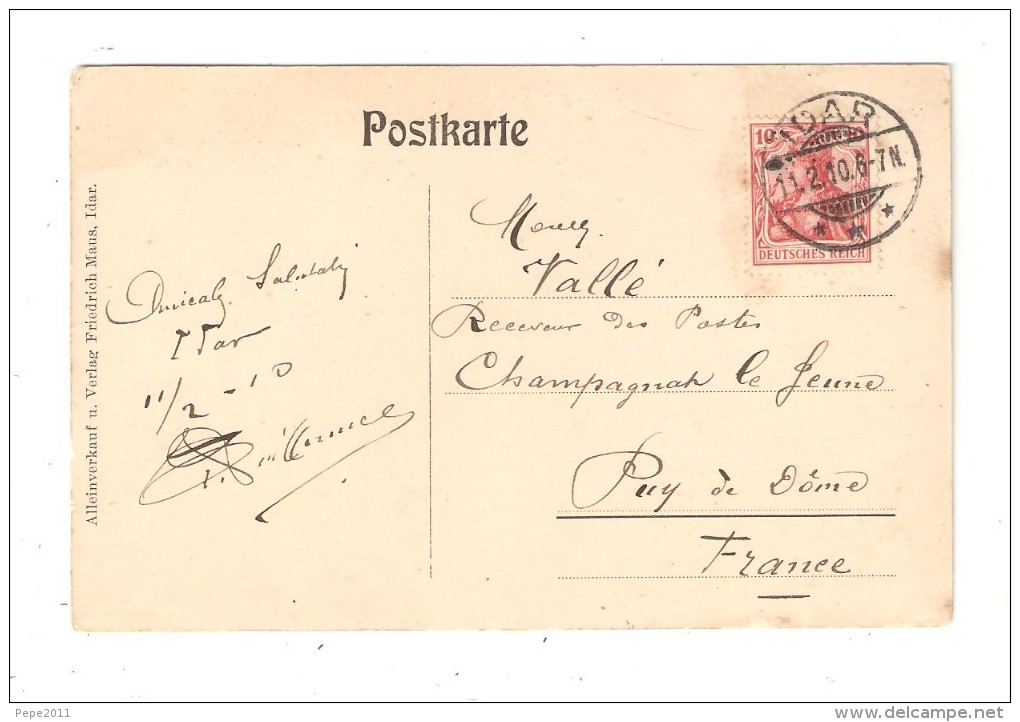 Postkarte
IDAR
11.2.10.6-7N.
10
DEUTSCHES REICH
Alleinverkauf u. Verlag Friedrich Maus, Idar.
Idar
11/2 - 10
Vallé
Receveur des Postes
Champagnat le Jeune
Puy de Dôme
France
Pepe2011
www.delcampe.net